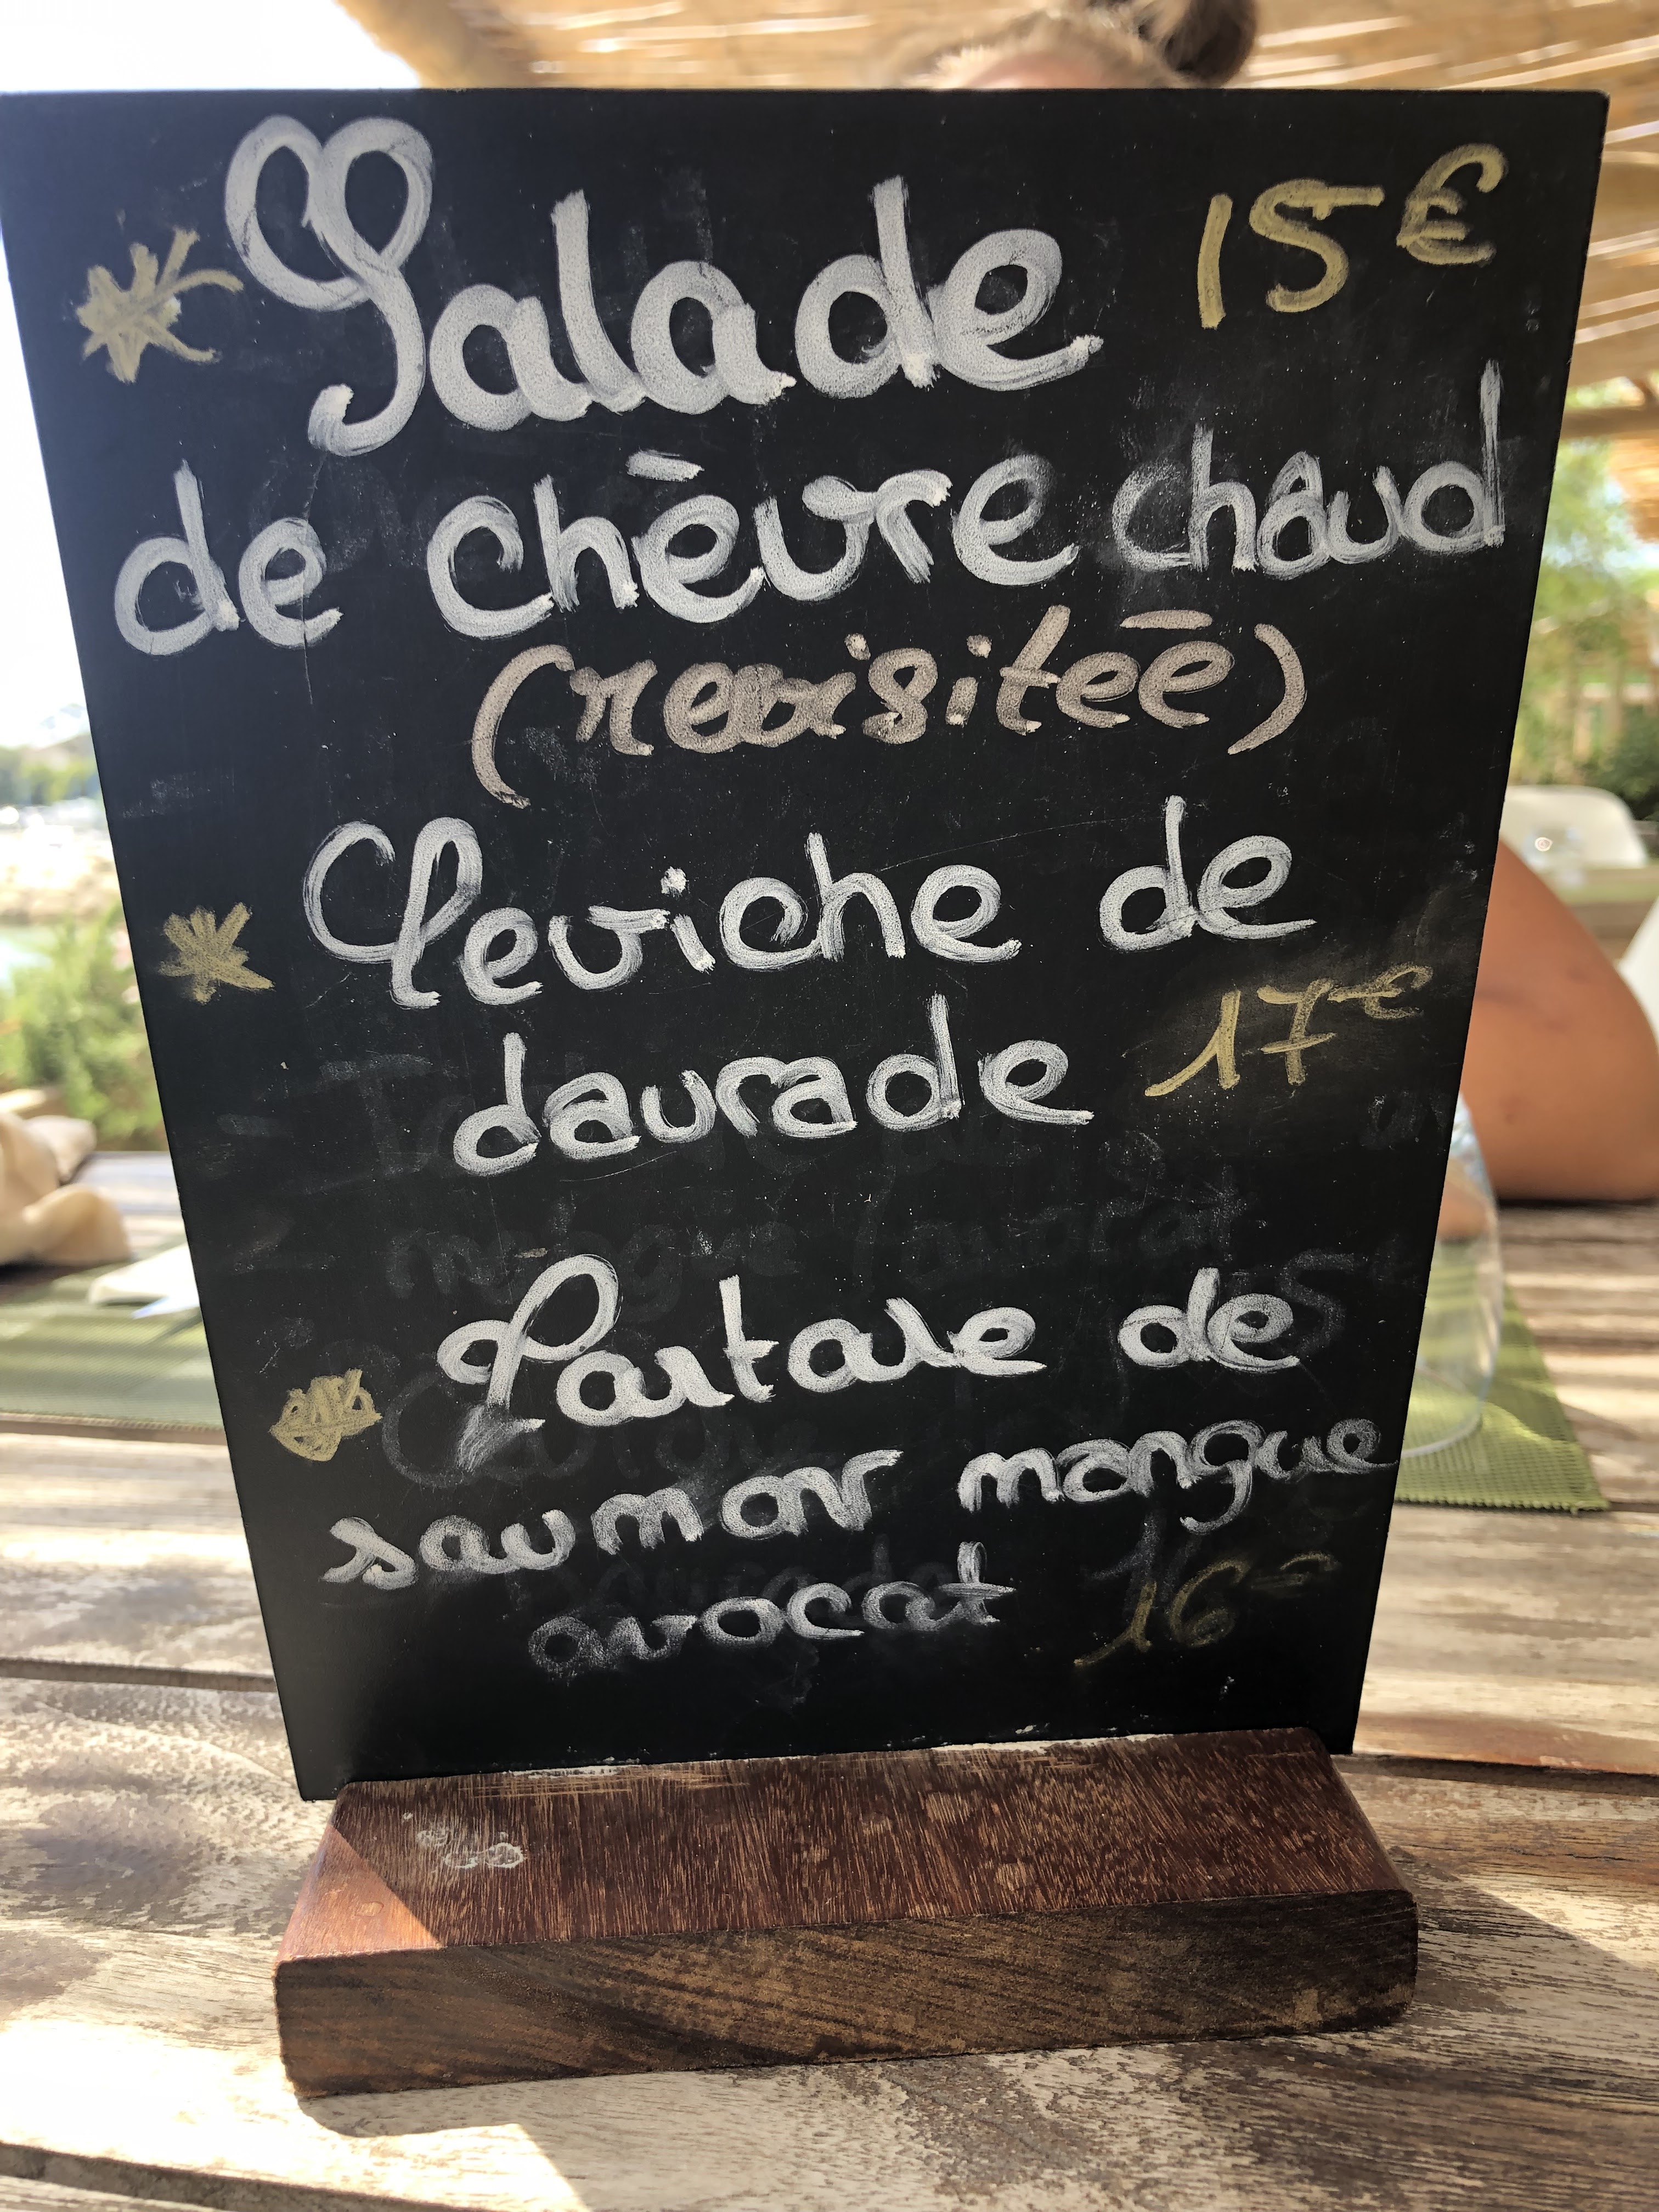 Salade 15€
de chèvre chaud
(revisitée)
Ceviche de
daurade 17€
Tartare de
saumon mangue
avocat 16€